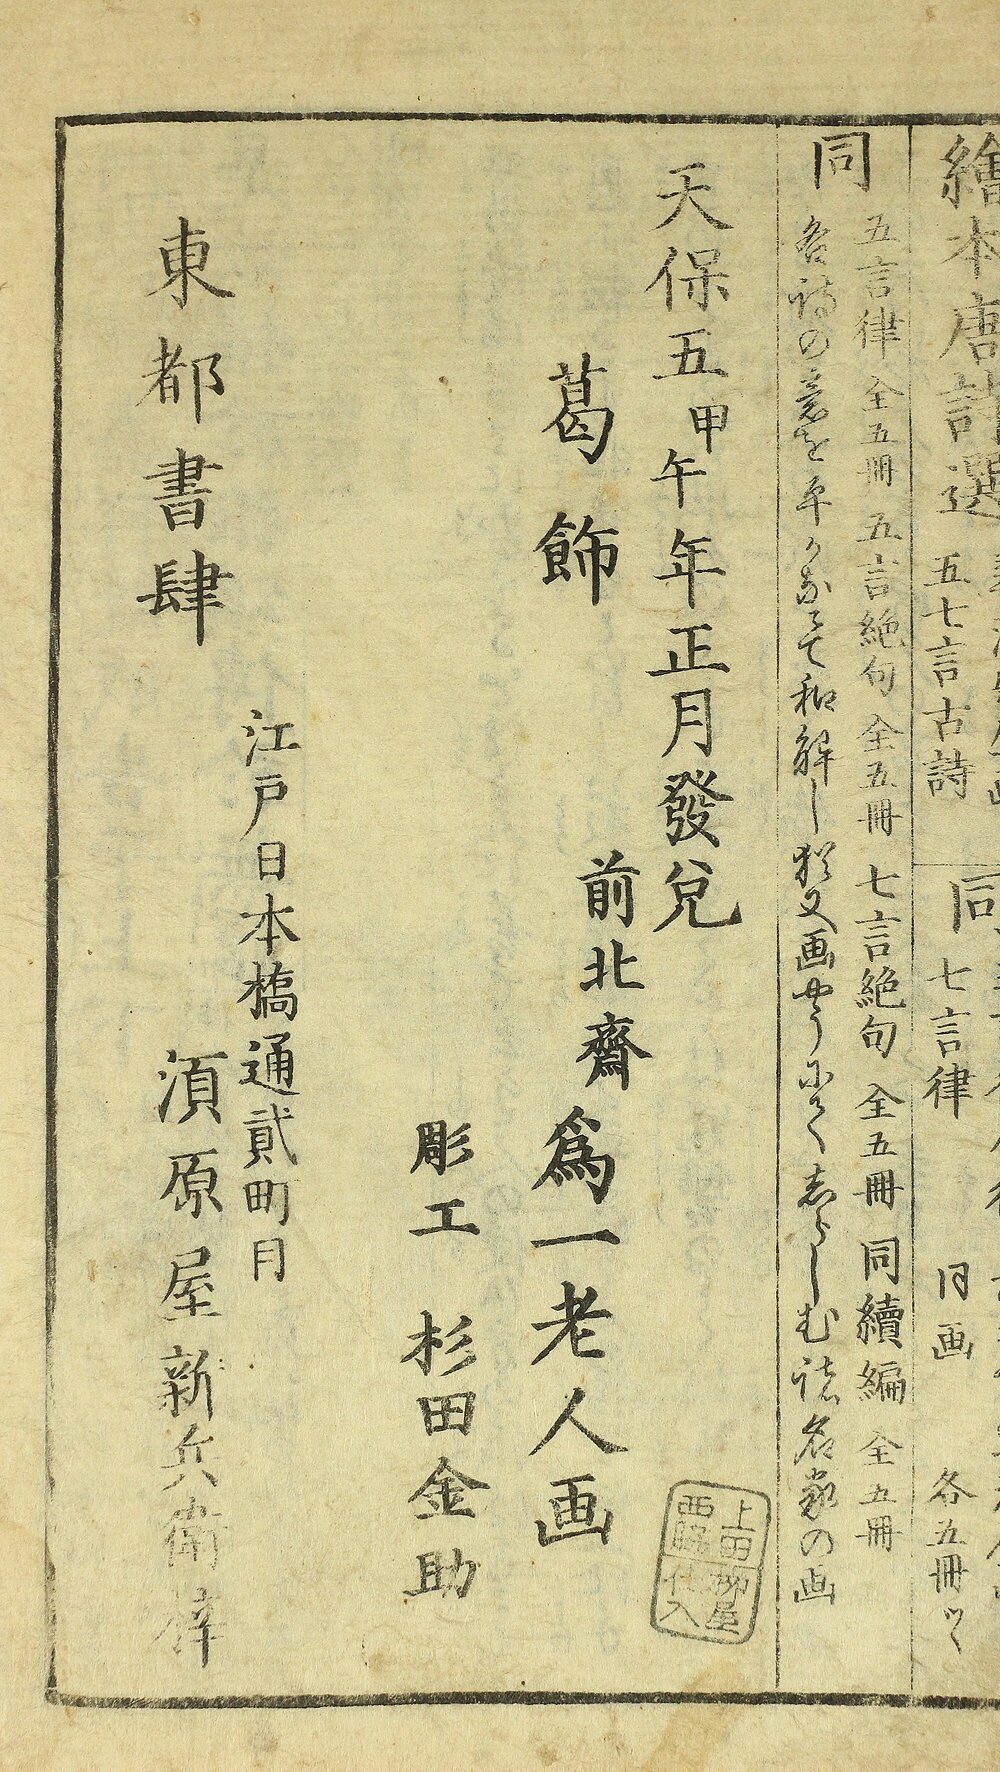 繪本唐詩選
五七言古詩
同
七言律
同画
各五冊ツヽ
同
五言律 全五冊 五言絶句 全五冊 七言絶句 全五冊 同續編 全五冊
各詩の意を平かなにて和解し猶又画やうにてしらしむ諸名家の画
天保五甲午年正月發兌
葛飾
前北齋
爲一老人画
彫工 杉田金助
上田柳屋
西脇仕入
江戸日本橋通貳町目
東都書肆
須原屋新兵衛梓